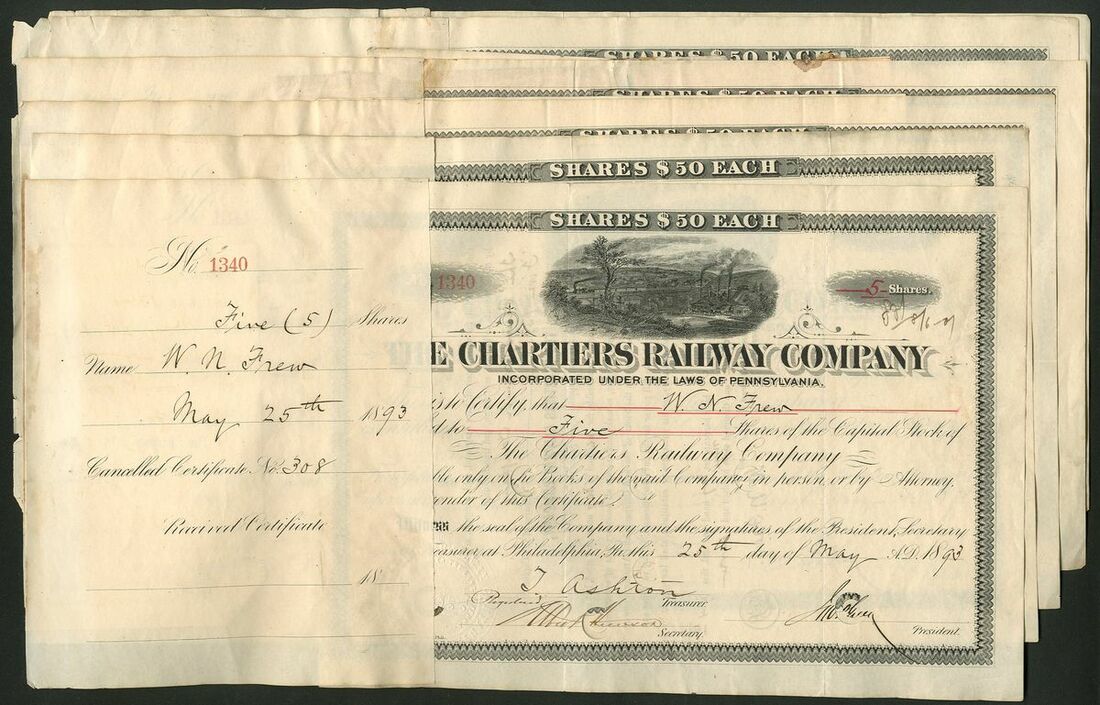 SHARES $50 EACH
SHARES $50 EACH
SHARES $50 EACH
SHARES $50 EACH
SHARES $50 EACH
No. 1340
Five (5) Shares
Name W. N. Frew
May 25th 1893
Cancelled Certificate No. 308
Received Certificate
18
1340
5 Shares.
E CHARTIERS RAILWAY COMPANY
INCORPORATED UNDER THE LAWS OF PENNSYLVANIA.
is to Certify, that W. N. Frew
d to Five Shares of the Capital Stock of
The Chartiers Railway Company
ble only on the Books of the said Company in person or by Attorney,
ender of this Certificate.
the seal of the Company and the signatures of the President, Secretary
easurer at Philadelphia, Pa. this 25th day of May A.D. 1893
T. Ashton
Treasurer
Secretary.
President.